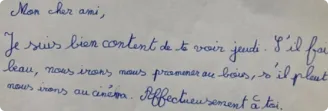 Mon cher ami,
Je suis bien content de te voir jeudi. S'il fai
beau, nous irons nous promener au bois, s'il pleut
nous irons au cinéma. Affectueusement à toi.